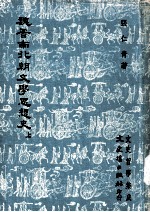 張仁青著
魏晉南北朝文學思想史
上
文史哲學集成
文史哲出版社印行